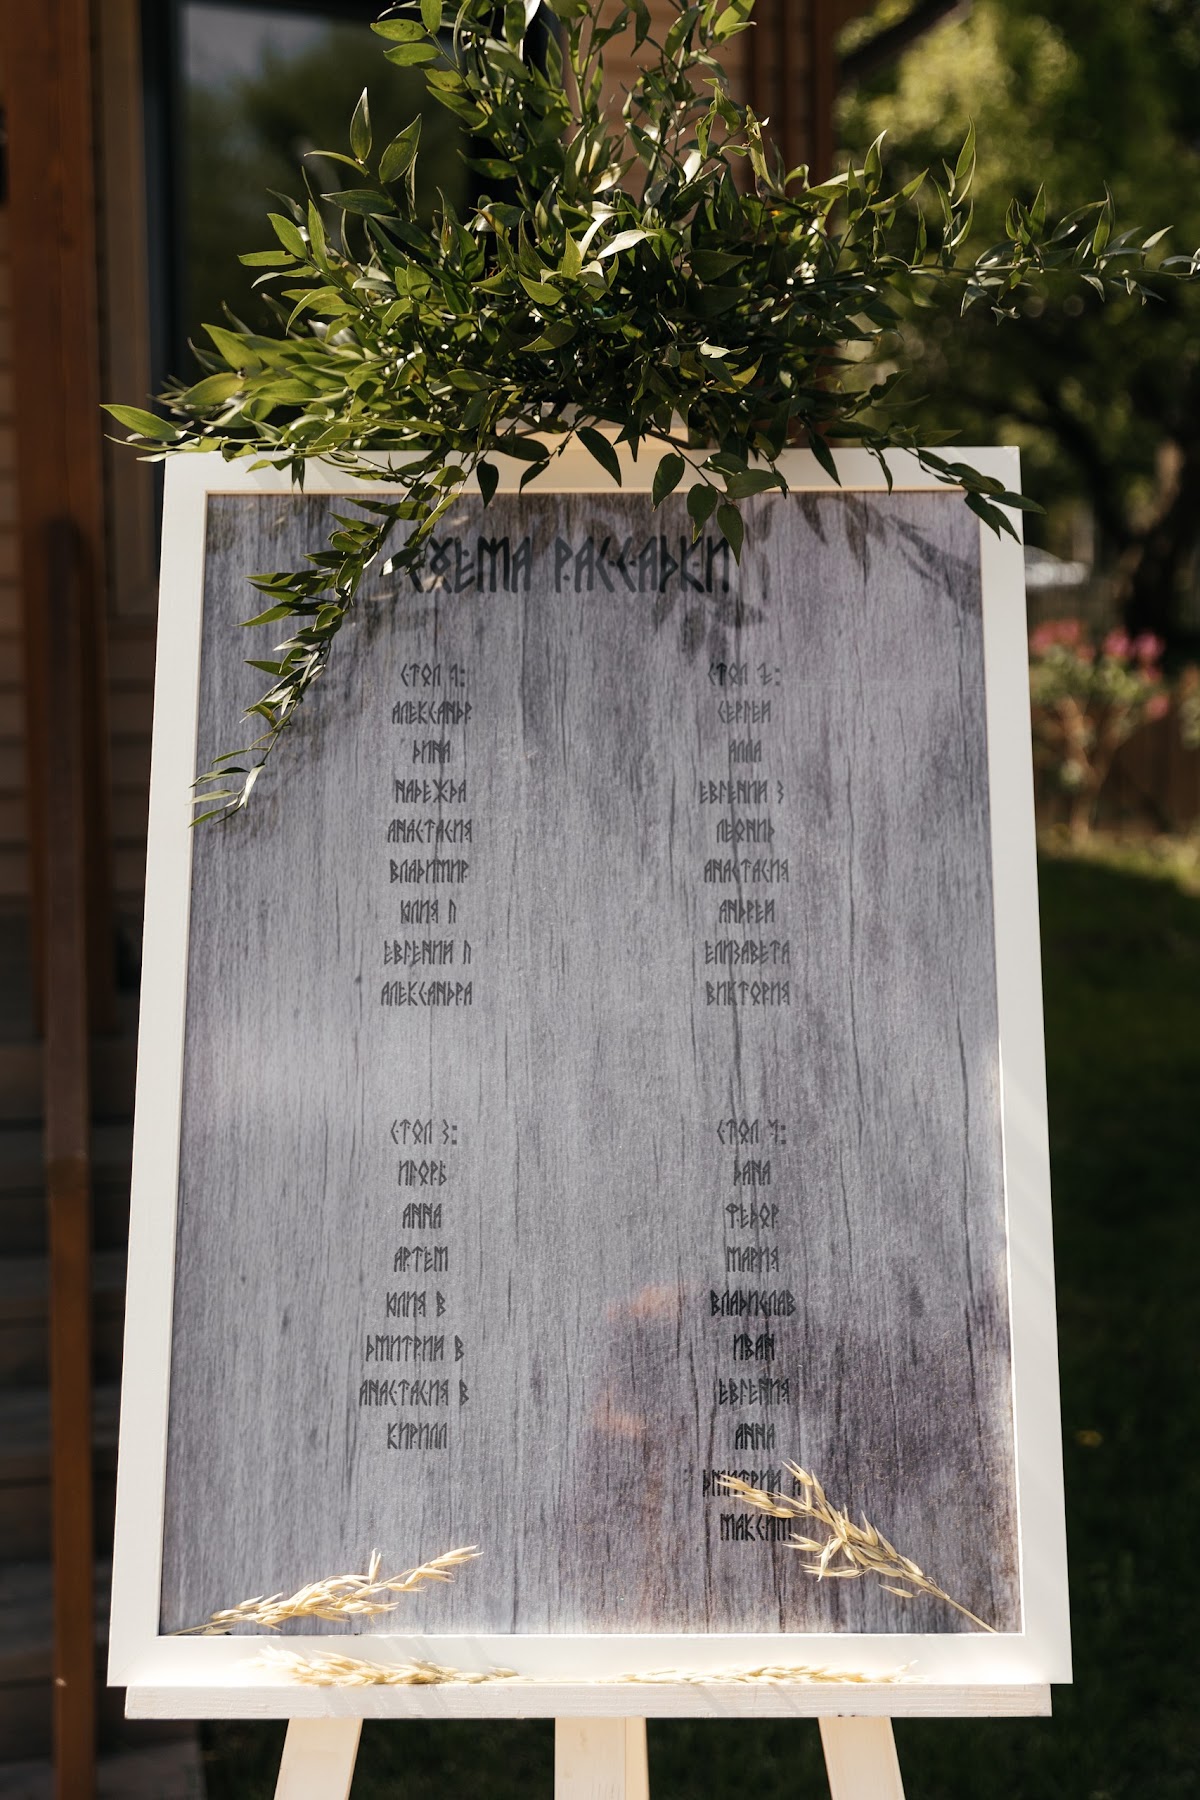 СХЕМА РАССАДКИ
СТОЛ 1:
АЛЕКСАНДР
ДИНА
НАДЕЖДА
АНАСТАСИЯ
ВЛАДИМИР
ЮЛИЯ П
ЕВГЕНИЙ П
АЛЕКСАНДРА
СТОЛ 2:
СЕРГЕЙ
АЛЛА
ЕВГЕНИЙ З
ЛЕОНИД
АНАСТАСИЯ
АНДРЕЙ
ЕЛИЗАВЕТА
ВИКТОРИЯ
СТОЛ 3:
ИГОРЬ
АННА
АРТЁМ
ЮЛИЯ В
ДМИТРИЙ В
АНАСТАСИЯ В
КИРИЛЛ
СТОЛ 4:
ДАНА
ФЕДОР
МАРИЯ
ВЛАДИСЛАВ
ИВАН
ЕВГЕНИЯ
АННА
ДМИТРИЙ
МАКСИМ